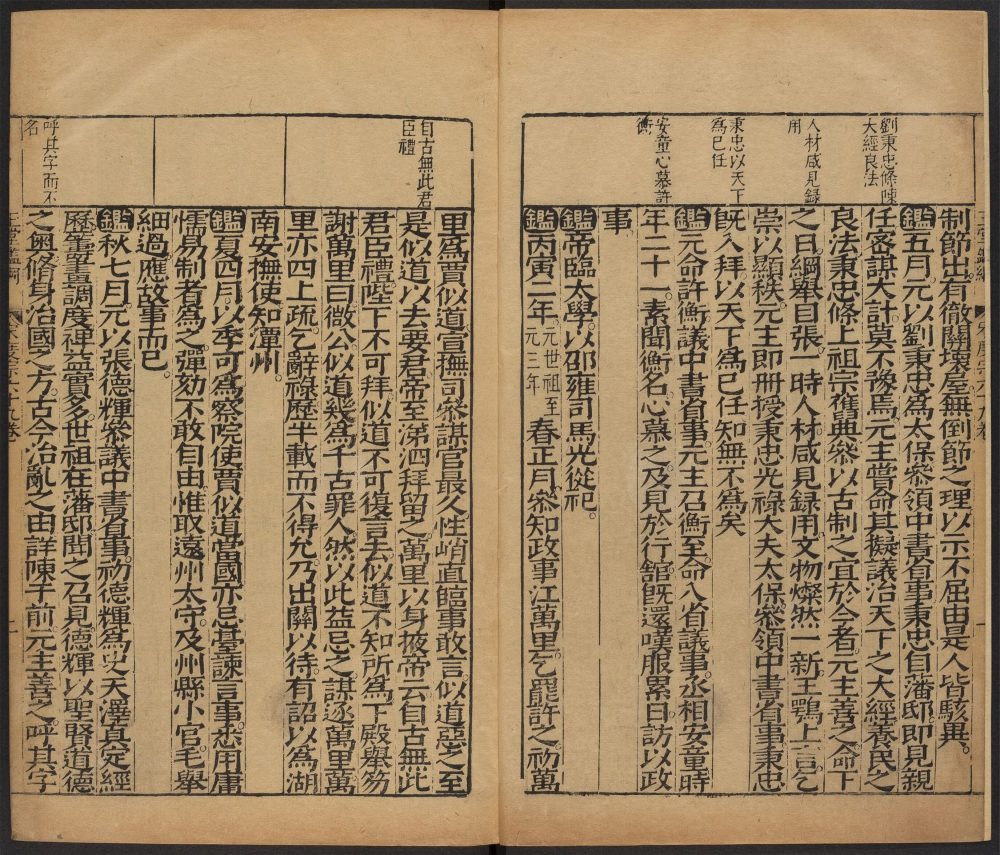 劉秉忠條陳
大經良法
人材咸見録
用
秉忠以天下
爲己任
安童心慕許
衡
制節出有徹關壞屋無倒節之理以示不屈由是人皆駭異。
鑑五月元以劉秉忠爲太保參領中書省事秉忠自藩邸即見親
任密謀大計莫不豫焉元主嘗命其擬議治天下之大經養民之
良法秉忠條上祖宗舊典參以古制之宜於今者元主善之命下
之日綱舉目張一時人材咸見録用文物燦然一新王鶚上言乞
崇以顯秩元主即冊授秉忠光祿大夫太保參領中書省事秉忠
既入拜以天下爲己任知無不爲矣
鑑元命許衡議中書省事元主召衡至命入省議事丞相安童時
年二十一素聞衡名心慕之及見於行舘既還嘆服累日訪以政
事
鑑帝臨太學以邵雍司馬光從祀。
鑑丙寅二年元世祖至元三年春正月參知政事江萬里乞罷許之初萬
自古無此君
臣禮
呼其字而不
名
里爲賈似道宣撫司參謀官最久性峭直臨事敢言似道惡之至
是似道以去要君帝至涕泗拜留之萬里以身掖帝云自古無此
君臣禮陛下不可拜似道不可復言去似道不知所爲下殿舉笏
謝萬里曰微公似道幾爲千古罪人然以此益忌之謀逐萬里萬
里亦四上疏乞辭祿歷半載而不得允乃出關以待有詔以爲湖
南安撫使知潭州
鑑夏四月以季可爲察院使賈似道當國亦忌臺諫言事悉用庸
懦易制者爲之彈劾不敢自由惟取遠州太守及州縣小官毛舉
細過應故事而已。
鑑秋七月元以張德輝參議中書省事初德輝爲史天澤真定經
歷籌畫調度裨益實多世祖在藩邸聞之召見德輝以聖賢道德
之奥修身治國之方古今治亂之由詳陳于前元主善之呼其字